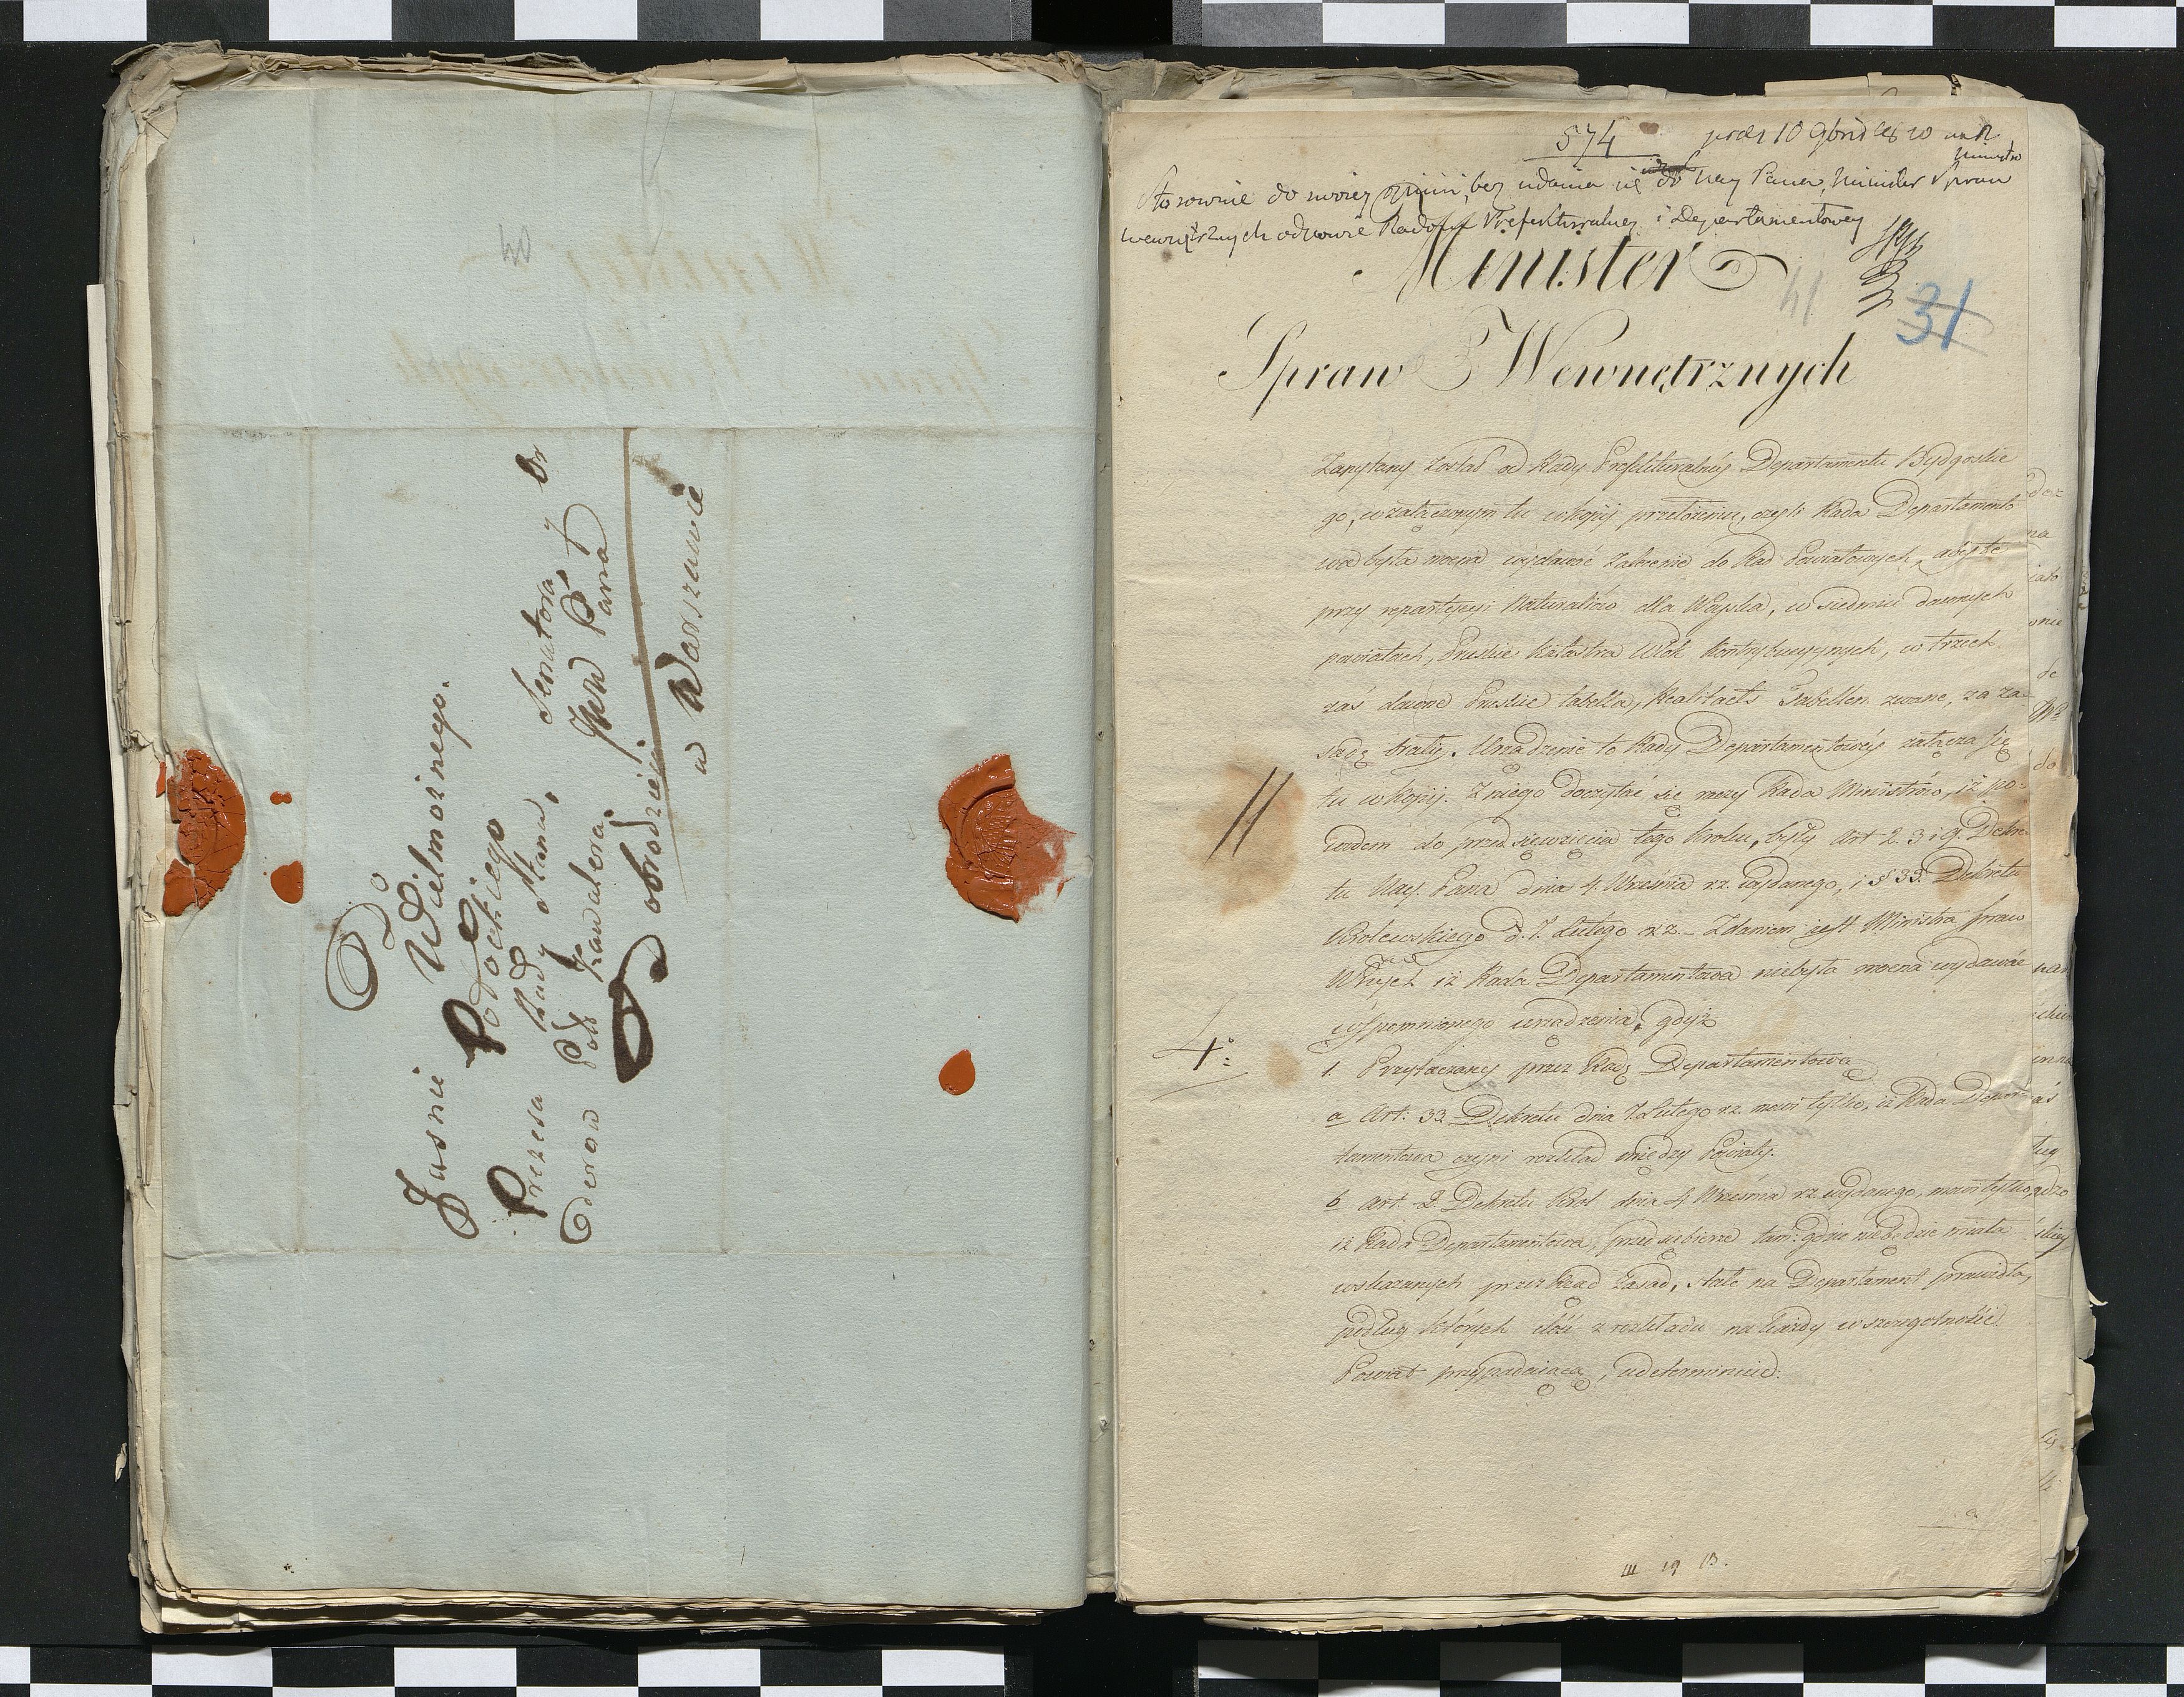 40
Do
Jaśnie Wielmożnego
Podoskiego
Prezesa Rady Stanu, Senatora, y Or
derow Pols Kawalera. JWW Pana
Dobrodzieja
w Warszawie
574
Stosownie do swoiey opinii, bez udania się do Nay Pana, Minister Spraw
Ministr
wewnętrznych odpowie Radom Prefekturalney i Departamentowey
Minister
41
31
Spraw Wewnętrznych
Zapytany został od Rady Prefekturalnéy Departamentu Bydgoskie
go, w załączonym tu w kopij przełożeniu, czyli Rada Departamento
wa była mocna wydawać zalecenie do Rad Powiatowych, aby te
przy repartycyi Naturaliów dla Woyska, w siedmiu dawnych
powiatach, Pruskie Katastra Włok kontrybucyinych, w trzech
zaś dawne Pruskie tabella, Realitaets Tabellen zwane, za za-
sadę brały. Urządzenie to Rady Departamentowéy załącza się
tu w kopij. Z niego doczytać się raczy Rada Ministrów, iż po-
wodem do przedsięwzięcia tego kroku, były Art 2. 3 i 9. Dekre
tu Nay. Pana dnia 4. Września rz. wydanego, i § 33. Dekretu
Królewskiego d. 7. Lutego rz. – Zdaniem iest Ministra Spraw
Wnych iż Rada Departamentowa niebyła mocna wydawać
wspomnionego urządzenia, gdyż
1. Przytaczany przez Radę Departamentową
4°:
a Art: 33 Dekretu dnia 7. Lutego rz. mowi tylko, iż Rada Depar-
tamentowa czyni rozkład między Powiaty.
b Art. 2. Dekretu Krol dnia 4 Września rz wydanego, mowi tylko
iż Rada Departamentowa, przedsiębierze tam: gdzie niebędzie miała
wskazanych przez Rząd zasad, stałe na Departament prawidła,
podług których ilość z rozkładu na każdy w szczegolności
Powiat przypadaiącą, udeterminuie.
III 19 13.